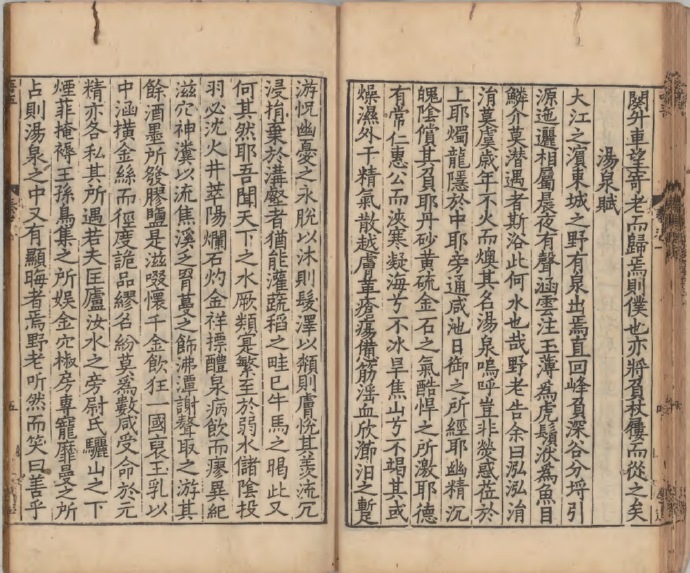 關升車望寄老而歸焉則僕也亦將負杖屨而從之矣
湯泉賦
大江之濱東城之野有泉出焉直回峰負深谷分埒引
源迤邐相屬晨夜有聲涵雲注玉薄爲虎鬚洑爲魚目
鱗介莫潛遇者斯浴此何水也哉野老告余曰泓泓涓
涓莫虞歲年不火而燠其名湯泉嗚呼豈非熒惑莅於
上耶燭龍隱於中耶旁通咸池日御之所經耶幽精沉
魄陰償其負耶丹砂黃硫金石之氣酷悍之所激耶德
有常仁惠公而浹寒凝海兮不冰旱焦山兮不竭其或
燥濕外干精氣散越膚革瘡瘍備筋淫血欣瀄汨之蹔
游怳幽憂之永脫以沐則髮澤以頮則膚悅其羨流冗
浸捐棄於溝壑者猶能灌蔬稻之畦已牛馬之暍此又
何其然耶吾聞天下之水厥類寔繁至於弱水儲陰投
羽必沈火井萃陽爛石灼金祥摽醴泉病飲而瘳異紀
滋穴神瀵以流焦溪乏胥蔓之飾沸潭謝鼇取之游其
餘酒墨所發膠鹽是滋啜懷千金飲狂一國裒玉乳以
中涵橫金絲而徑度詭品繆名紛莫爲數咸受命於元
精亦各私其所遇若夫匡廬汝水之旁尉氏驪山之下
煙菲掩褥王孫鳥集之所娛金穴椒房專寵靡曼之所
占則湯泉之中又有顯晦者焉野老听然而笑曰善乎
五